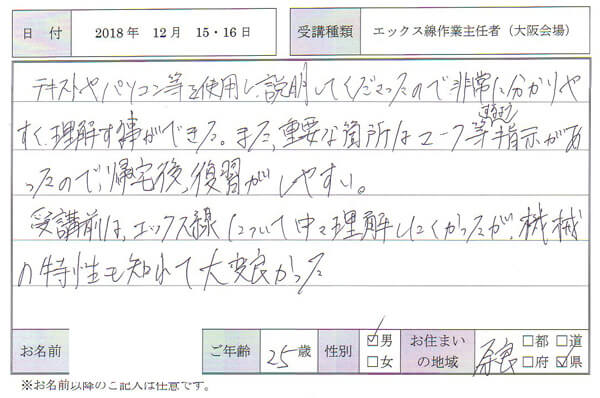 日 付 2018年 12月 15・16日 受講種類 エックス線作業主任者（大阪会場）
テキストやパソコン等を使用し、説明してくださったので非常に分かりや
すく、理解す事ができた。また、重要な箇所はマーク等指示があ
ったので、帰宅後、復習がしやすい。
受講前は、エックス線について中々理解しにくかったが、機械
の特性も知れて大変良かった
お名前 ご年齢 25歳 性別 ☑男 □女 お住まいの地域 奈良 □都 □道 □府 ☑県
※お名前以降のご記入は任意です。